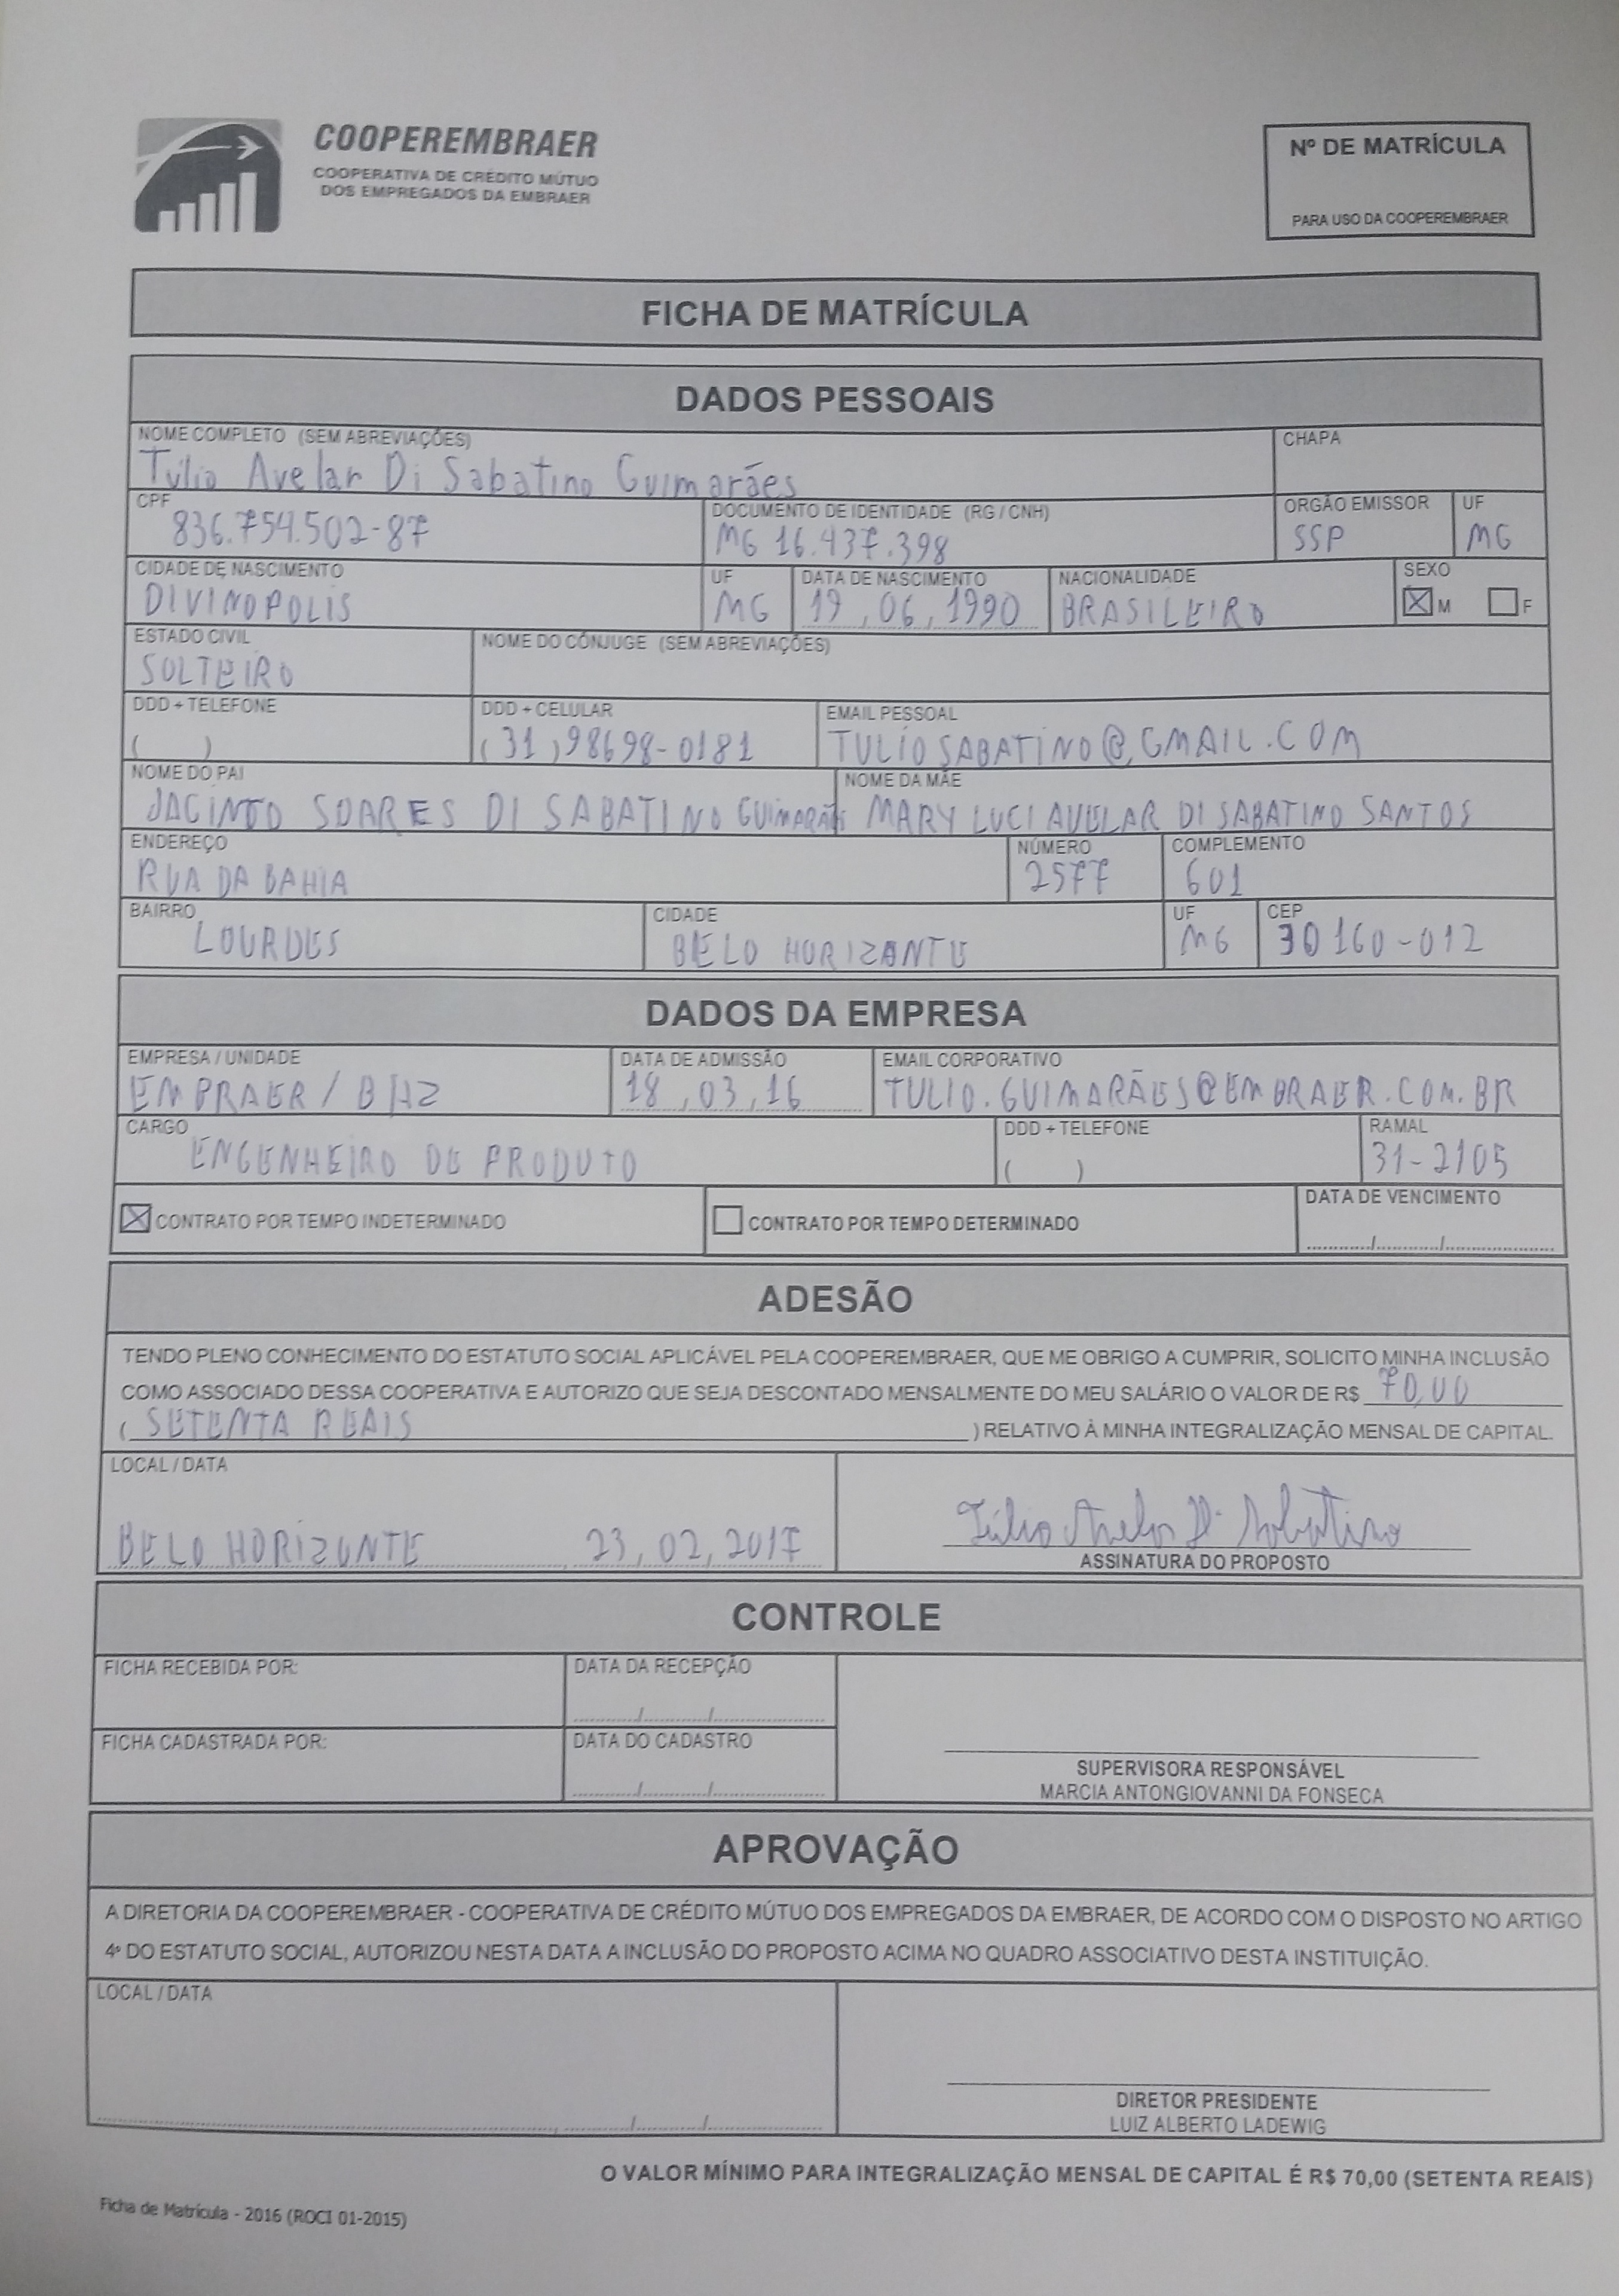 COOPEREMBRAER
COOPERATIVA DE CRÉDITO MÚTUO
DOS EMPREGADOS DA EMBRAER
Nº DE MATRÍCULA
PARA USO DA COOPEREMBRAER
FICHA DE MATRÍCULA
DADOS PESSOAIS
NOME COMPLETO (SEM ABREVIAÇÕES) CHAPA
Túlio Avelar Di Sabatino Guimarães
CPF DOCUMENTO DE IDENTIDADE (RG / CNH) ORGÃO EMISSOR UF
836.754.502-87 MG 16.437.398 SSP MG
CIDADE DE NASCIMENTO UF DATA DE NASCIMENTO NACIONALIDADE SEXO
DIVINOPOLIS MG 19/06/1990 BRASILEIRO M F
ESTADO CIVIL NOME DO CÔNJUGE (SEM ABREVIAÇÕES)
SOLTEIRO
DDD + TELEFONE DDD + CELULAR EMAIL PESSOAL
( ) (31) 98698-0181 TULIOSABATINO@GMAIL.COM
NOME DO PAI NOME DA MÃE
JACINTO SOARES DI SABATINO GUIMARÃES MARY LUCI AVELAR DI SABATINO SANTOS
ENDEREÇO NÚMERO COMPLEMENTO
RUA DA BAHIA 2577 601
BAIRRO CIDADE UF CEP
LOURDES BELO HORIZONTE MG 30160-012
DADOS DA EMPRESA
EMPRESA / UNIDADE DATA DE ADMISSÃO EMAIL CORPORATIVO
EMBRAER / BHZ 18/03/16 TULIO.GUIMARÃES@EMBRAER.COM.BR
CARGO DDD + TELEFONE RAMAL
ENGENHEIRO DE PRODUTO ( ) 31-2105
CONTRATO POR TEMPO INDETERMINADO CONTRATO POR TEMPO DETERMINADO DATA DE VENCIMENTO
ADESÃO
TENDO PLENO CONHECIMENTO DO ESTATUTO SOCIAL APLICÁVEL PELA COOPEREMBRAER, QUE ME OBRIGO A CUMPRIR, SOLICITO MINHA INCLUSÃO
COMO ASSOCIADO DESSA COOPERATIVA E AUTORIZO QUE SEJA DESCONTADO MENSALMENTE DO MEU SALÁRIO O VALOR DE R$ 70,00
( SETENTA REAIS ) RELATIVO À MINHA INTEGRALIZAÇÃO MENSAL DE CAPITAL.
LOCAL / DATA
BELO HORIZONTE 23/02/2017 Túlio Avelar D. Sabatino
ASSINATURA DO PROPOSTO
CONTROLE
FICHA RECEBIDA POR: DATA DA RECEPÇÃO
FICHA CADASTRADA POR: DATA DO CADASTRO
SUPERVISORA RESPONSÁVEL
MARCIA ANTONGIOVANNI DA FONSECA
APROVAÇÃO
A DIRETORIA DA COOPEREMBRAER - COOPERATIVA DE CRÉDITO MÚTUO DOS EMPREGADOS DA EMBRAER, DE ACORDO COM O DISPOSTO NO ARTIGO
4º DO ESTATUTO SOCIAL, AUTORIZOU NESTA DATA A INCLUSÃO DO PROPOSTO ACIMA NO QUADRO ASSOCIATIVO DESTA INSTITUIÇÃO.
LOCAL / DATA
DIRETOR PRESIDENTE
LUIZ ALBERTO LADEWIG
O VALOR MÍNIMO PARA INTEGRALIZAÇÃO MENSAL DE CAPITAL É R$ 70,00 (SETENTA REAIS)
Ficha de Matrícula - 2016 (ROCI 01-2015)